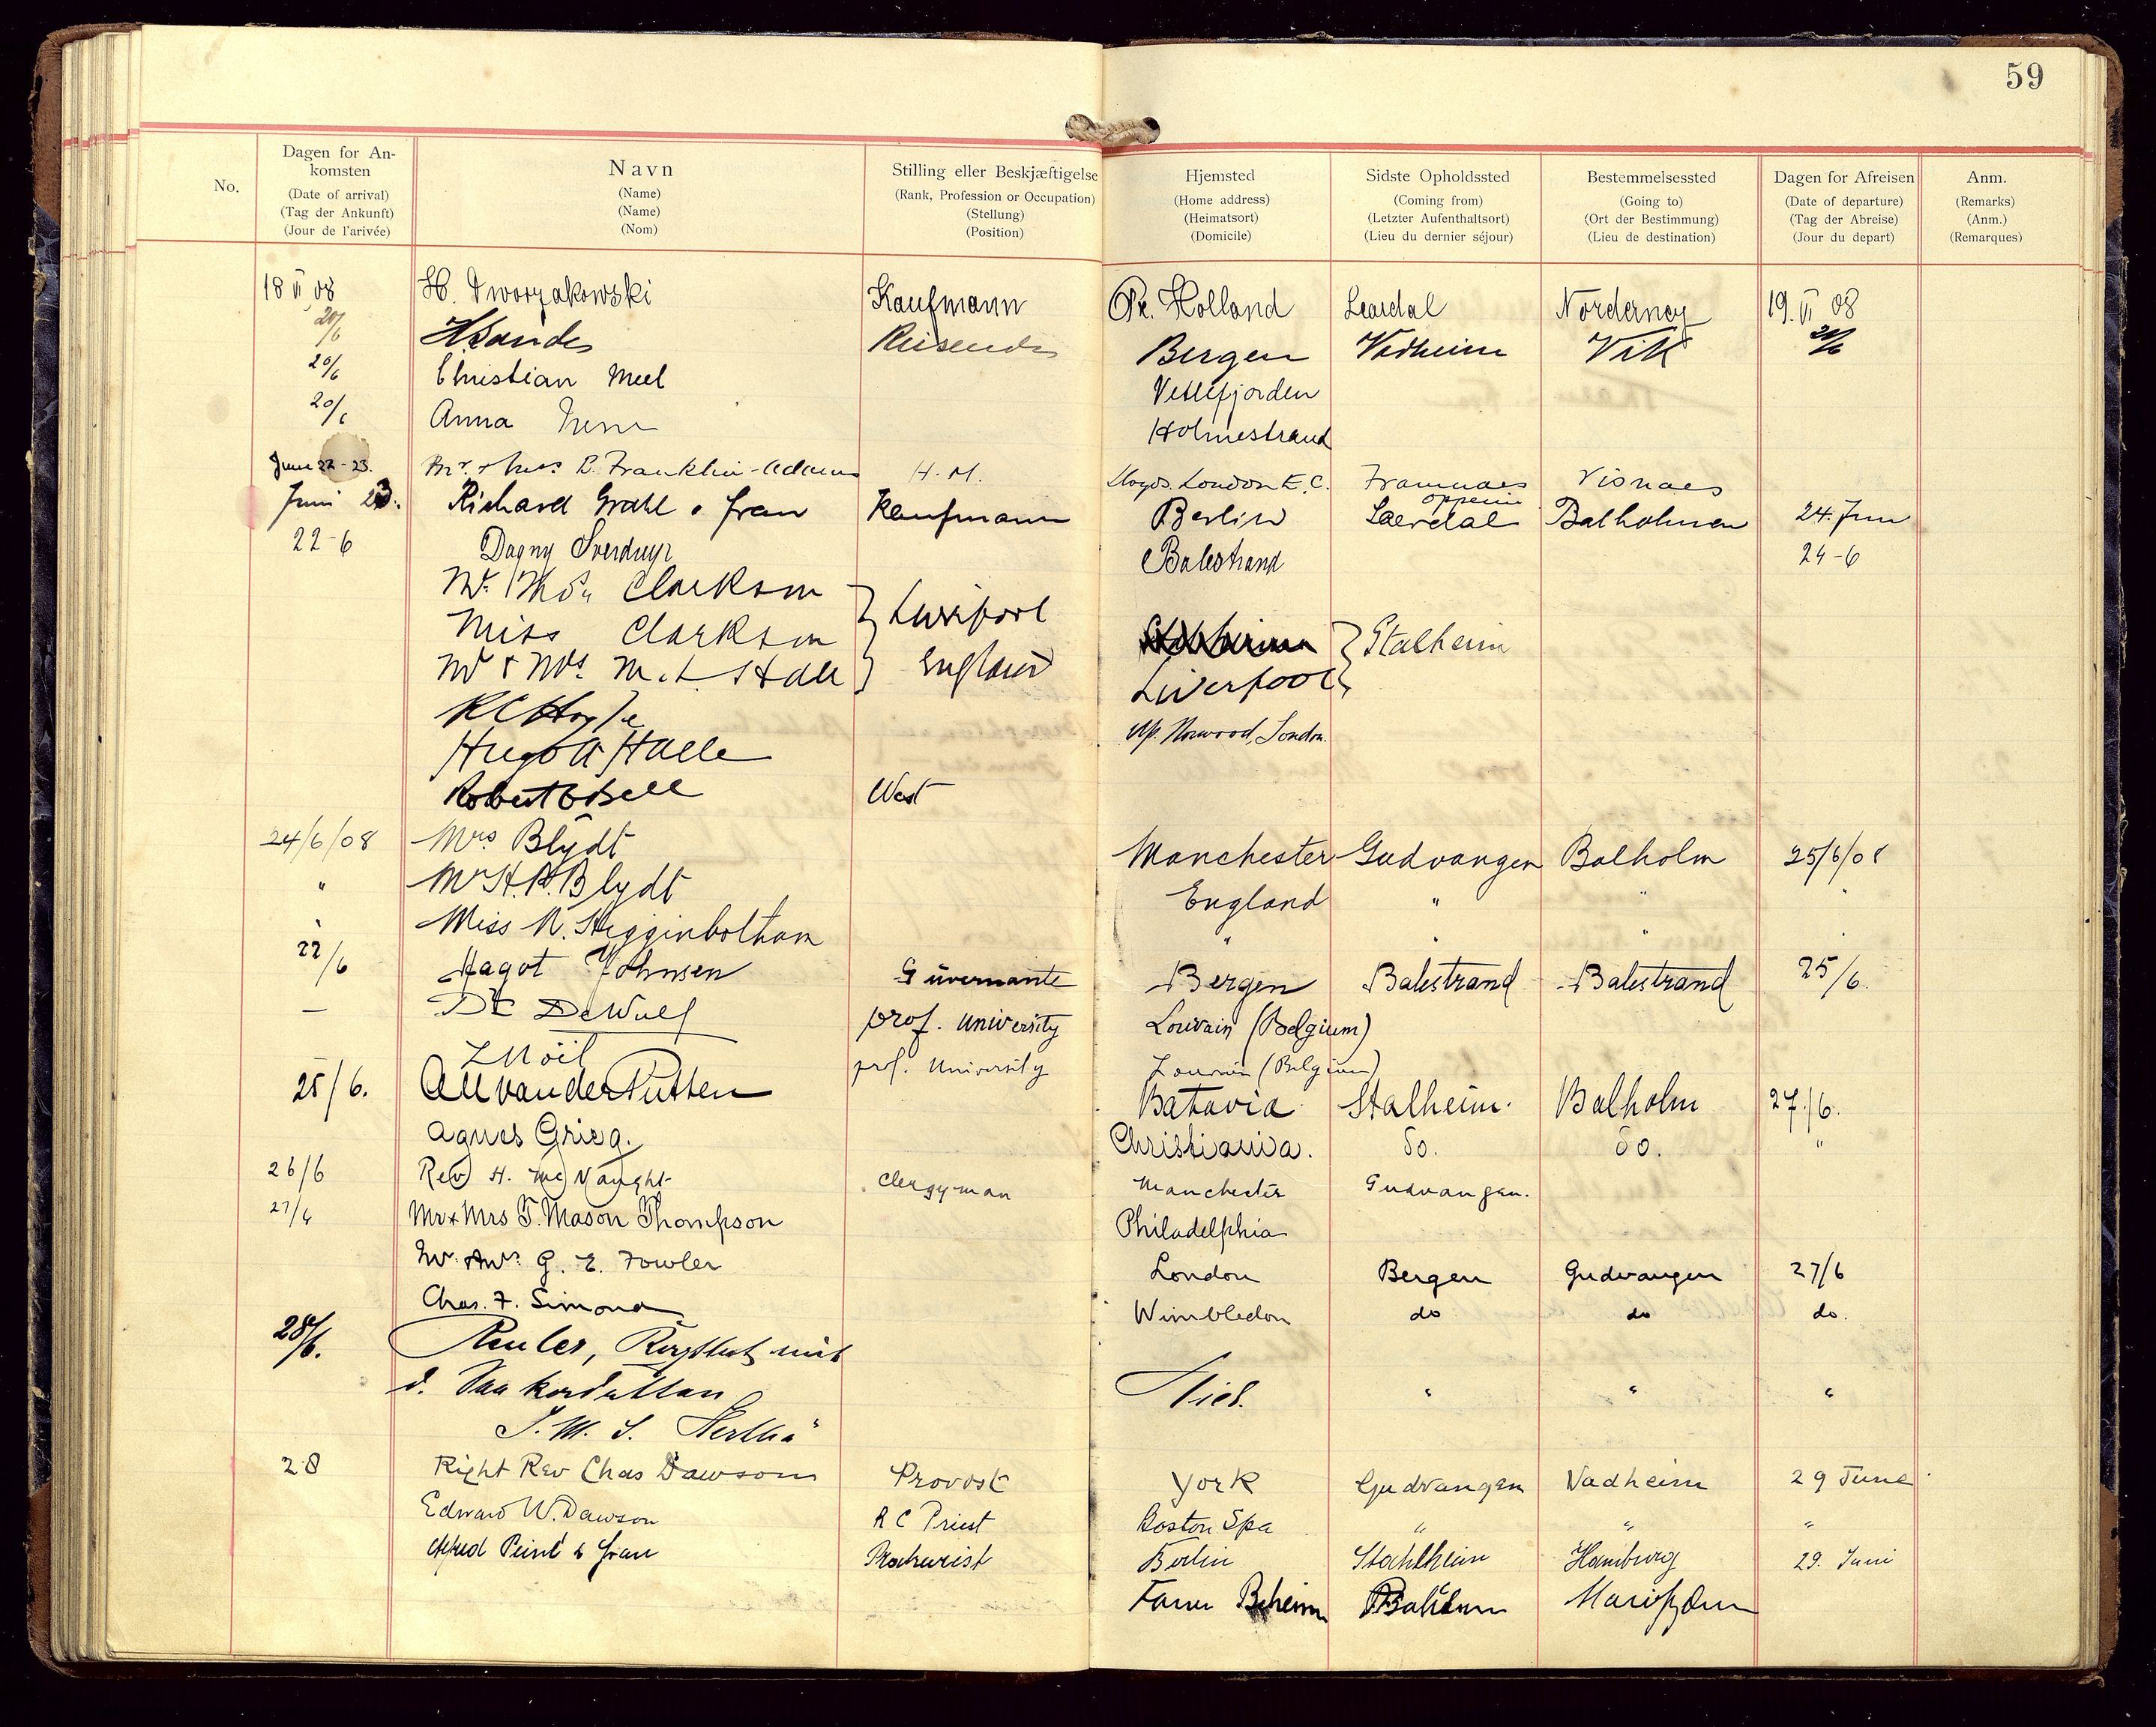 59
No.
Dagen for An-
komsten
(Date of arrival)
(Tag der Ankunft)
(Jour de l'arivée)
Navn
(Name)
(Name)
(Nom)
Stilling eller Beskjæftigelse
(Rank, Profession or Occupation)
(Stellung)
(Position)
Hjemsted
(Home address)
(Heimatsort)
(Domicile)
Sidste Opholdssted
(Coming from)
(Letzter Aufenthaltsort)
(Lieu du dernier séjour)
Bestemmelsessted
(Going to)
(Ort der Bestimmung)
(Lieu de destination)
Dagen for Afreisen
(Date of departure)
(Tag der Abreise)
(Jour du depart)
Anm.
(Remarks)
(Anm.)
(Remarques)
18 VI 08 H. Dworzakowski Kaufmann Pr. Holland Leardal Norderney 19. VI 08
20/6 Reisende Bergen Vadheim Vik 20/6
20/6 Christian Meel Vetlefjorden
20/6 Anna Holmestrand
June 22-23. Mr. & Mrs R. Franklin-Adams H. M. Lloyds. London E.C. Framnaes Visnaes
Juni 23. Richard Grahl & frau Kaufmann Berlin Laerdal Balholmen 24. Jun
22-6 Dagny Sverdrup Balestrand 24-6
Mr. Thos. Clarkson
Miss Clarkson Liverpool Stalheim
Mr & Mrs. M. L. Hall England Liverpool
R C Hoyle Up. Norwood, London.
Hugo A Halle
Robert Bell West
24/6/08 Mrs Blydt Manchester Gudvangen Balholm 25/6/08
" Mr H. A. Blydt England " " "
" Miss N. Higginbotham " " " "
22/6 Magot Johnsen Guvernante Bergen Balestrand Balestrand 25/6.
— Dr DeWulf prof. University Louvain (Belgium)
L Noël prof. University Louvain (Belgium)
25/6. van der Putten Batavia Stalheim. Balholm 27./6.
Agnes Grieg. Christiania. do. do. "
26/6 Rev H. McNaught clergyman Manchester Gudvangen.
27/6 Mr & Mrs T. Mason Thompson Philadelphia
Mr. & Mrs. G. E. Fowler London Bergen Gudvangen 27/6
Chas. F. Simond Wimbledon do do do.
28/6. mit
d.
S. M. S. Hertha" Kiel. " " "
28 Right Rev Chas Dawson Provost York Gudvangen Vadheim 29 June
Edward W. Dawson R C Priest Boston Spa " " "
Alfred Peint & frau Prokurist Berlin Stahlheim Hamburg 29. Juni